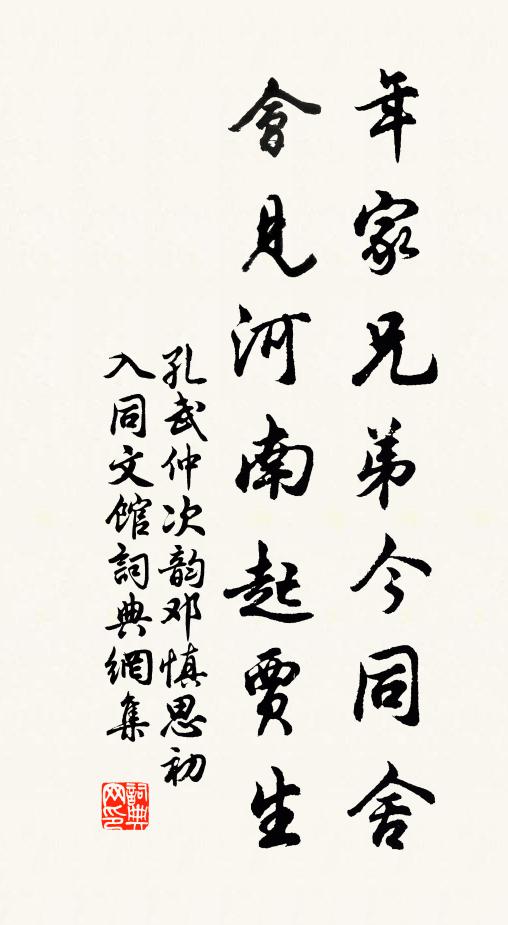 年家兄弟今同舍
會見河南起賈生
孔武仲次韵邓慎思初
入同文馆詞典網集
詞典网印